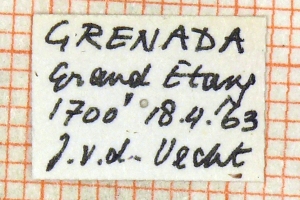 GRENADA
Grand Etang
1700' 18.4.'63
J.v.d. Vecht